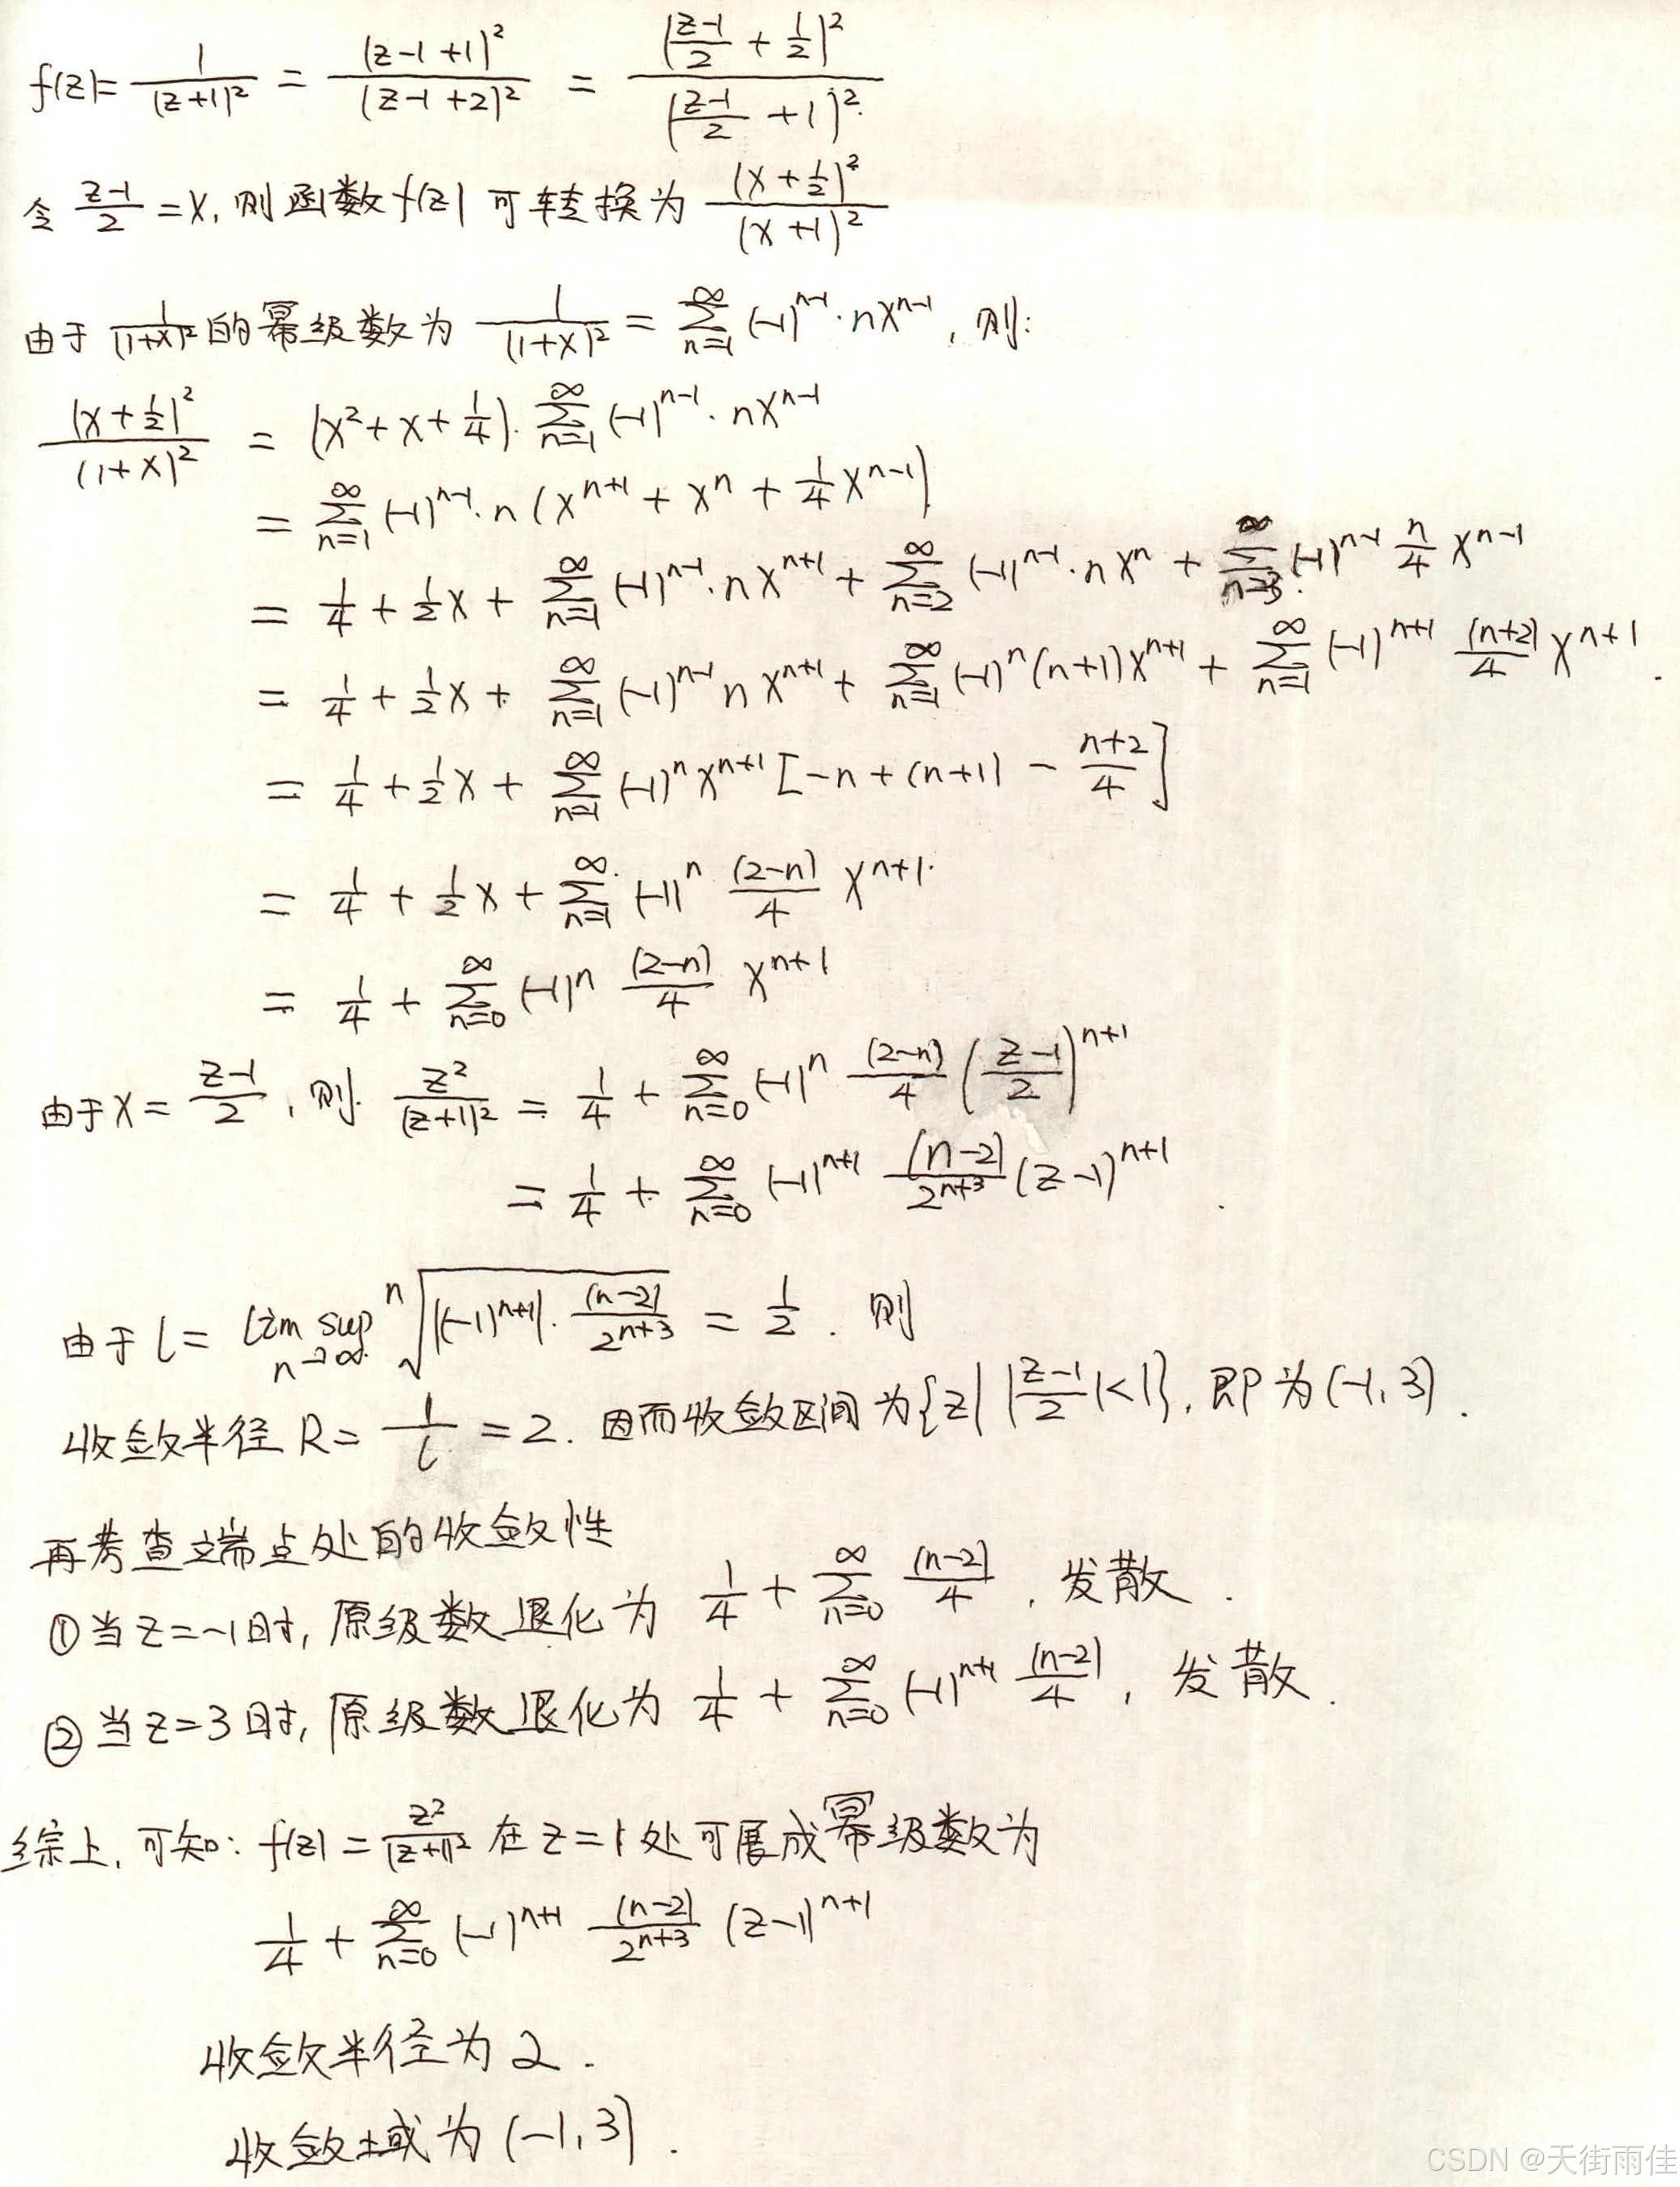 f(z)= 1/(z+1)² = (z-1+1)²/(z-1+2)² = ((z-1)/2 + 1/2)²/((z-1)/2 + 1)²
令 (z-1)/2 = x, 则函数f(z) 可转换为 (x+1/2)²/(x+1)²
由于 1/(1+x)² 的幂级数为 1/(1+x)² = ∑_{n=1}^{∞} (-1)^{n-1}·nx^{n-1}, 则:
(x+1/2)²/(1+x)² = (x²+x+1/4)·∑_{n=1}^{∞} (-1)^{n-1}·nx^{n-1}
= ∑_{n=1}^{∞} (-1)^{n-1}·n(x^{n+1} + x^n + 1/4 x^{n-1})
= 1/4 + 1/2 x + ∑_{n=1}^{∞} (-1)^{n-1}·nx^{n+1} + ∑_{n=2}^{∞} (-1)^{n-1}·nx^n + ∑_{n=3}^{∞} (-1)^{n-1} n/4 x^{n-1}
= 1/4 + 1/2 x + ∑_{n=1}^{∞} (-1)^{n-1} nx^{n+1} + ∑_{n=1}^{∞} (-1)^n (n+1)x^{n+1} + ∑_{n=1}^{∞} (-1)^{n+1} (n+2)/4 x^{n+1}.
= 1/4 + 1/2 x + ∑_{n=1}^{∞} (-1)^n x^{n+1} [-n + (n+1) - (n+2)/4]
= 1/4 + 1/2 x + ∑_{n=1}^{∞} (-1)^n (2-n)/4 x^{n+1}.
= 1/4 + ∑_{n=0}^{∞} (-1)^n (2-n)/4 x^{n+1}
由于 x = (z-1)/2, 则. z²/(z+1)² = 1/4 + ∑_{n=0}^{∞} (-1)^n (2-n)/4 ((z-1)/2)^{n+1}
= 1/4 + ∑_{n=0}^{∞} (-1)^{n+1} (n-2)/2^{n+3} (z-1)^{n+1}.
由于 l = lim sup_{n→∞} ⁿ√(|(-1)^{n+1}|·(n-2)/2^{n+3}) = 1/2. 则
收敛半径 R = 1/l = 2. 因而收敛区间为{z| |(z-1)/2|<1}, 即为(-1,3).
再考查端点处的收敛性
①当z=-1时, 原级数退化为 1/4 + ∑_{n=0}^{∞} (n-2)/4, 发散.
②当z=3时, 原级数退化为 1/4 + ∑_{n=0}^{∞} (-1)^{n+1} (n-2)/4, 发散.
综上, 可知: f(z) = z²/(z+1)² 在 z=1 处可展成幂级数为
1/4 + ∑_{n=0}^{∞} (-1)^{n+1} (n-2)/2^{n+3} (z-1)^{n+1}
收敛半径为 2.
收敛域为 (-1,3).
CSDN @天街雨佳